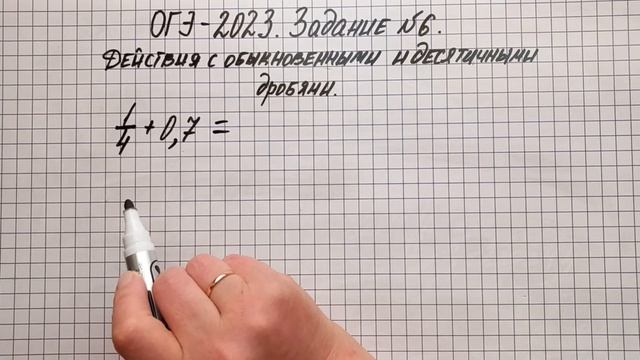 ОГЭ-2023. Задание №6.
Действия с обыкновенными и десятичными
дробями.
1/4 + 0,7 =